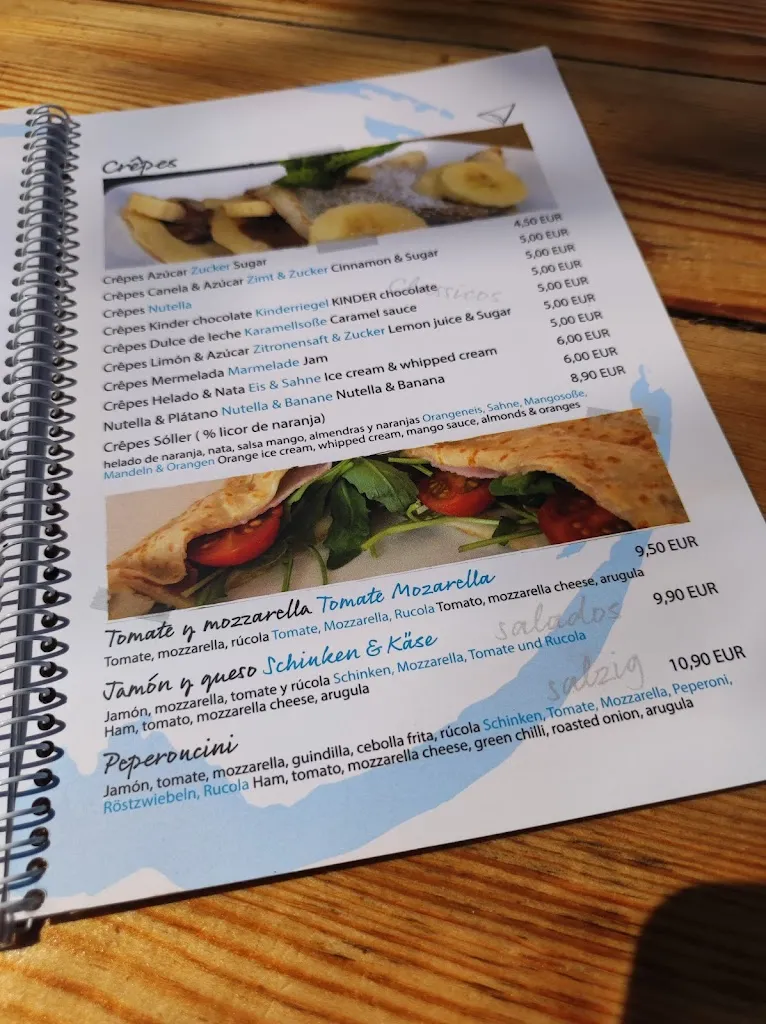 Crêpes
Crêpes Azúcar Zucker Sugar 4,50 EUR
Crêpes Canela & Azúcar Zimt & Zucker Cinnamon & Sugar 5,00 EUR
Crêpes Nutella 5,00 EUR
Crêpes Kinder chocolate Kinderriegel KINDER chocolate 5,00 EUR
Crêpes Dulce de leche Karamellsoße Caramel sauce 5,00 EUR
Crêpes Limón & Azúcar Zitronensaft & Zucker Lemon juice & Sugar 5,00 EUR
Crêpes Mermelada Marmelade Jam 5,00 EUR
Crêpes Helado & Nata Eis & Sahne Ice cream & whipped cream 6,00 EUR
Nutella & Plátano Nutella & Banane Nutella & Banana 6,00 EUR
Crêpes Sóller ( % licor de naranja) 8,90 EUR
helado de naranja, nata, salsa mango, almendras y naranjas Orangeneis, Sahne, Mangosoße,
Mandeln & Orangen Orange ice cream, whipped cream, mango sauce, almonds & oranges
Classicos
Tomate y mozzarella Tomate Mozarella 9,50 EUR
Tomate, mozzarella, rúcola Tomate, Mozzarella, Rucola Tomato, mozzarella cheese, arugula
salados
Jamón y queso Schinken & Käse 9,90 EUR
Jamón, mozzarella, tomate y rúcola Schinken, Mozzarella, Tomate und Rucola
Ham, tomato, mozzarella cheese, arugula
salzig
Peperoncini 10,90 EUR
Jamón, tomate, mozzarella, guindilla, cebolla frita, rúcola Schinken, Tomate, Mozzarella, Peperoni,
Röstzwiebeln, Rucola Ham, tomato, mozzarella cheese, green chilli, roasted onion, arugula